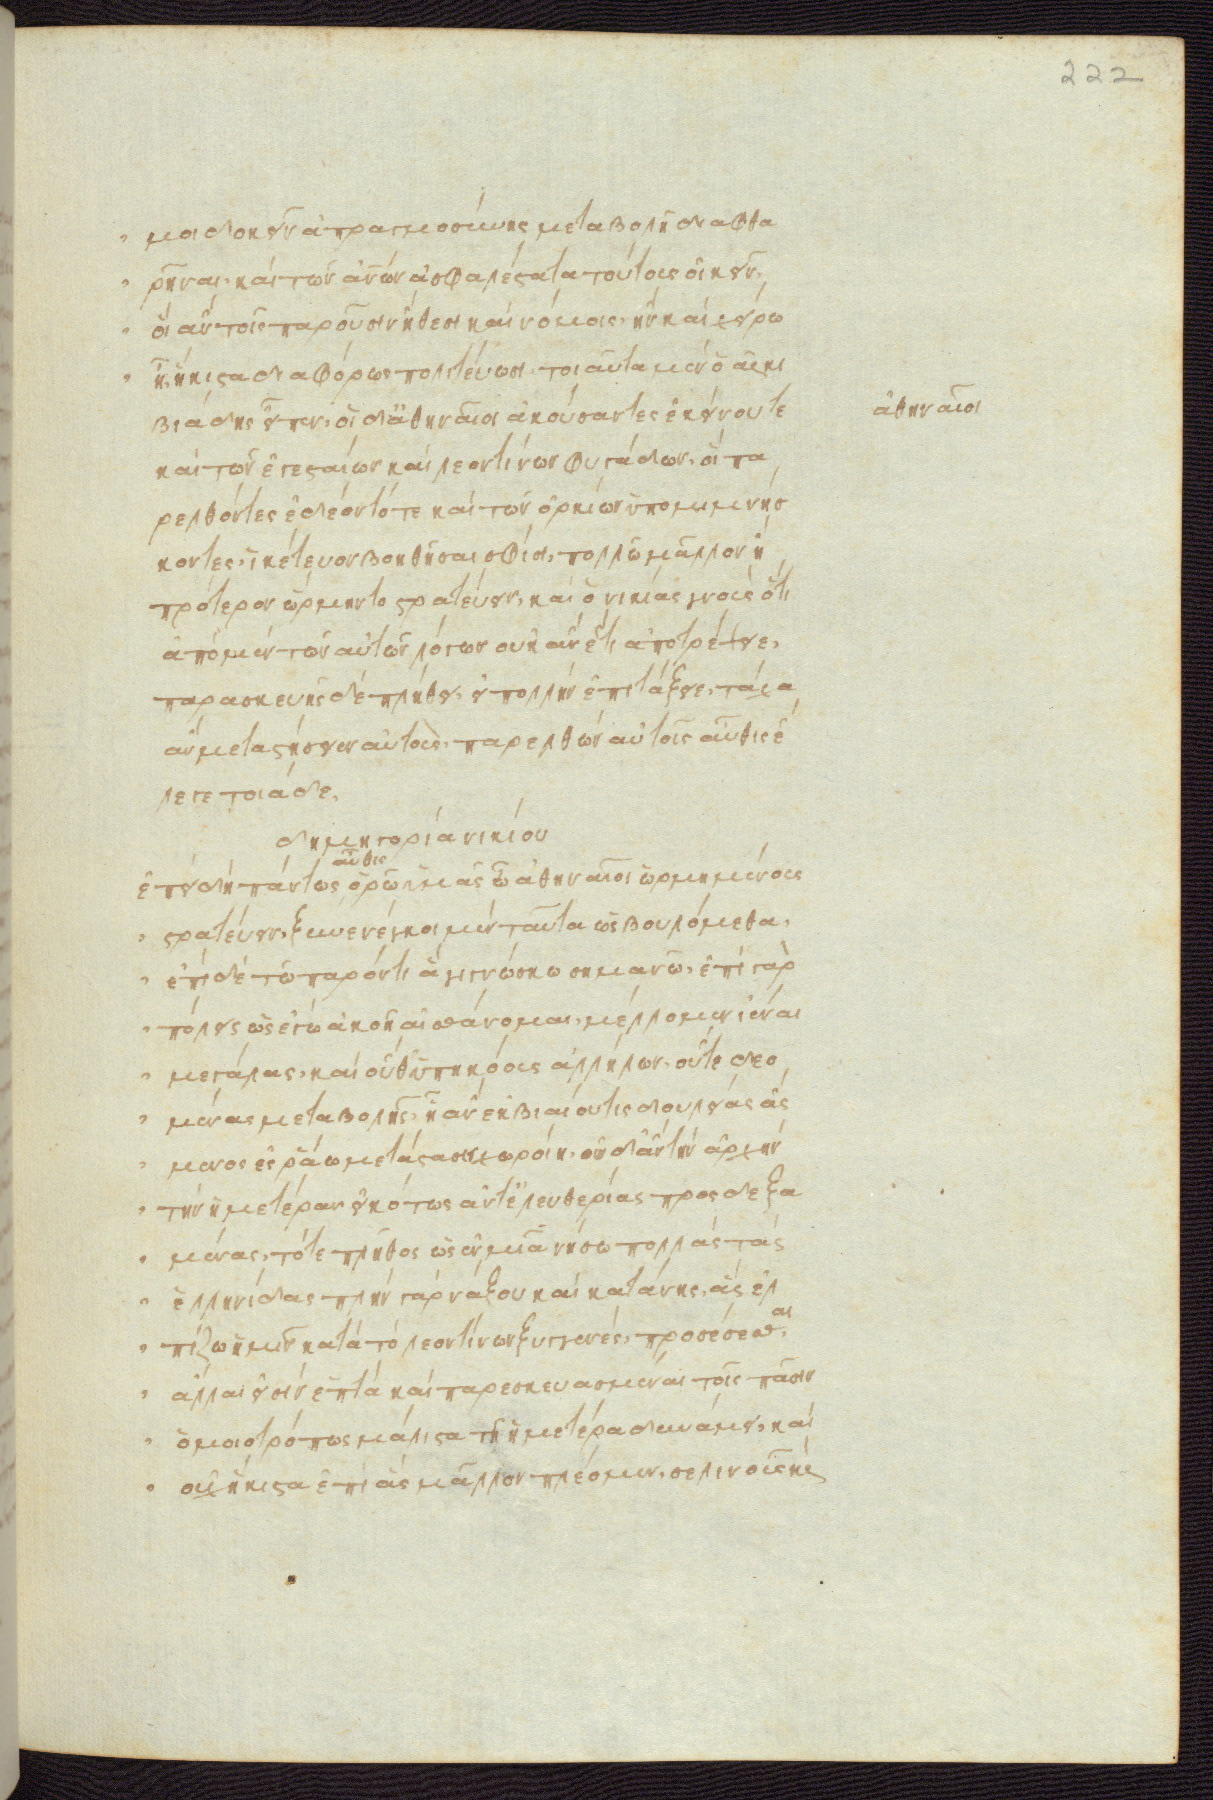 222
μοι δοκεῖν ἀπραγμοσύνης μεταβολῇ διαφθα
ρῆναι, καὶ τῶν ἀνῶν ἀσφαλέστατα τούτους οἰκεῖν,
οἳ ἂν τοῖς παροῦσιν ἤθεσι καὶ νόμοις, ἢν καὶ χείρω
ᾖ, ἥκιστα διαφόρως πολιτεύωσι. τοιαῦτα μὲν ὁ ἀλκι
βιάδης εἶπεν. οἱ δ' ἀθηναῖοι ἀκούσαντες ἐκείνου τε
ἀθηναῖοι
καὶ τῶν ἐγεσταίων καὶ λεοντίνων φυγάδων, οἳ πα
ρελθόντες ἐδέοντό τε καὶ τῶν ὁρκίων ὑπομιμνήσ
κοντες, ἱκέτευον βοηθῆσαι σφίσι, πολλῶ μᾶλλον ἢ
πρότερον ὥρμηντο στρατεύειν. καὶ ὁ νικίας γνοὺς ὅτι
ἀπὸ μὲν τῶν αὐτῶν λόγων οὐκ ἂν ἔτι ἀποτρέψειε,
παρασκευῆς δὲ πλήθει, εἰ πολλὴν ἐπιτάξειε, τάχα
ἂν μεταστήσειεν αὐτούς. παρελθὼν αὐτοῖς αὖθις ἔ
λεγε τοιάδε.
δημηγορία νικίου
αὖθις
ἐπειδὴ πάντως ὁρῶ ὑμᾶς ὦ ἀθηναῖοι ὡρμημένους
στρατεύειν, ξυνενέγκοι μὲν ταῦτα ὡς βουλόμεθα.
ἐπὶ δὲ τῶ παρόντι ἃ γιγνώσκω σημανῶ. ἐπὶ γὰρ
πόλεις ὡς ἐγὼ ἀκοῇ αἰσθάνομαι, μέλλομεν ἰέναι
μεγάλας, καὶ οὔθ' ὑπηκόους ἀλλήλων, οὔτε δεο
μένας μεταβολῆς, ᾗ ἂν ἐκ βιαίου τις δουλείας ἄσ
μενος ἐς ῥάω μετάστασιν χωροίη, οὐδ' ἂν τὴν ἀρχὴν
τὴν ἡμετέραν εἰκότως ἀντ' ἐλευθερίας προσδεξα
μένας, τό τε πλῆθος ὡς ἐν μιᾶ νήσω πολλὰς τὰς
ἑλληνίδας. πλὴν γὰρ νάξου καὶ κατάνης, ἃς ἐλ
πίζω ἡμῖν κατὰ τὸ λεοντίνων ξυγγενὲς, προσέσεσθαι,
ἄλλαι εἰσὶν ἑπτὰ καὶ παρεσκευασμέναι τοῖς πᾶσιν
ὁμοιοτρόπως μάλιστα τῇ ἡμετέρα δυνάμει, καὶ
οὐχ ἥκιστα ἐπὶ ἃς μᾶλλον πλέομεν, σελινοῦς καὶ